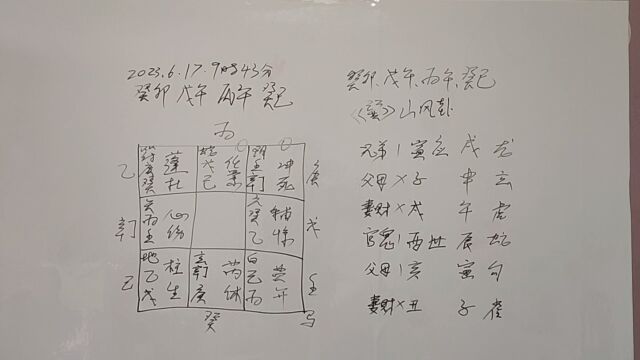 2023.6.17.9时43分
癸卯 戊午 丙午 癸巳
丙
乙
符 蓬
癸 杜
蛇
戊 任
己 景
阴 冲
辛 死
庚
辛
天 心
丙
壬 伤
六 辅
癸
乙 惊
戊
己
地 柱
乙
戊 生
玄 芮
辛
庚 休
白 英
己
丙 开
壬
癸
马
癸卯、戊午、丙午、癸巳
山风卦
兄弟 | 寅应 戌 龙
父母 × 子 申 玄
妻财 × 戌 午 虎
官鬼 | 酉世 辰 蛇
父母 | 亥 寅 勾
妻财 × 丑 子 雀